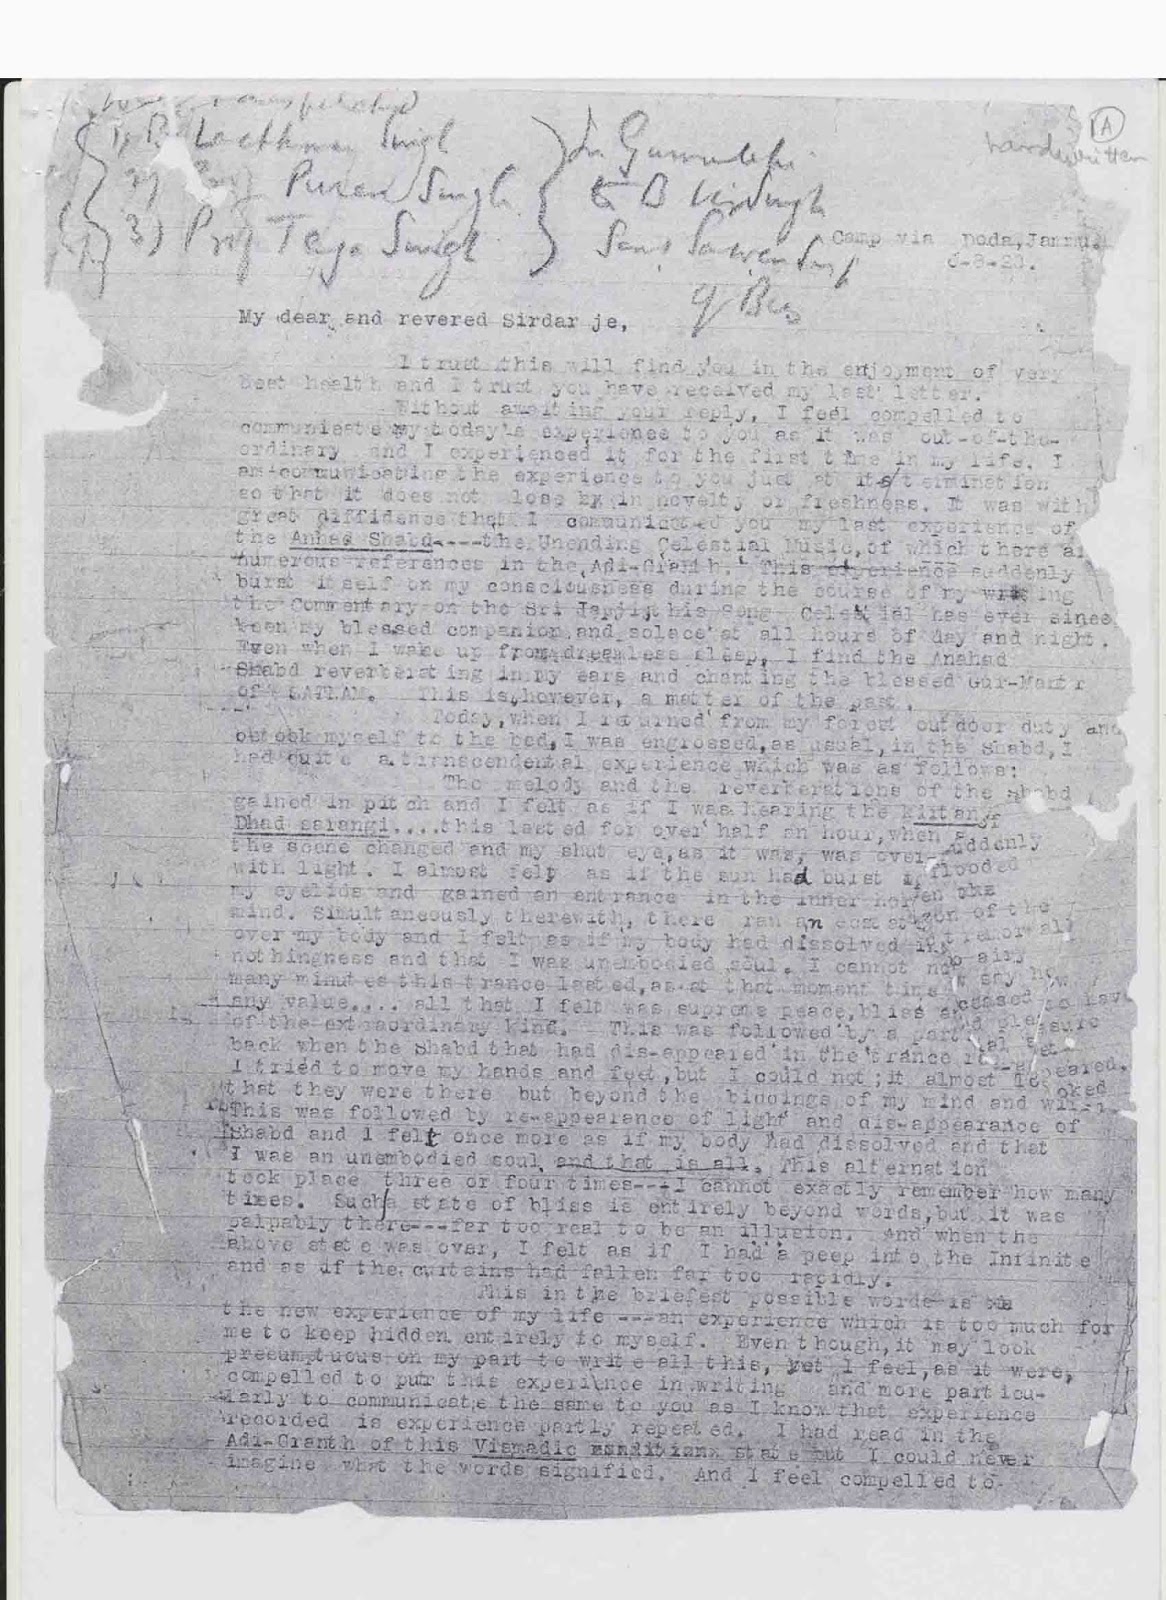 A
handwritten
1, B. Lachhman Singh
2) Puran Singh
3) Prof Teja Singh
In Gurmukhi
& B Virsingh
Sant Sawan Singh
of Beas
Camp via Doda, Jammu.
-8-23.
My dear and revered Sirdar je,
I trust this will find you in the enjoyment of very
best health and I trust you have received my last letter.
Without awaiting your reply, I feel compelled to
communicate my today's experience to you as it was out-of-the-
ordinary and I experienced it for the first time in my life. I
am communicating the experience to you just at its termination
so that it does not lose in novelty or freshness. It was with
great diffidence that I communicated you my last experience of
the Anhad Shabd----the Unending Celestial Music, of which there a
numerous references in the Adi-Granth. This experience suddenly
burst itself on my consciousness during the course of my writing
the Commentary on the Sri Japji; this Song Celestial has ever since
been my blessed companion and solace at all hours of day and night.
Even when I wake up from dreamless sleep, I find the Anahad
Shabd reverberating in my ears and chanting the blessed Gur-Mantr
of SATNAM. This is, however, a matter of the past.
Today, when I returned from my forest outdoor duty and
betook myself to the bed, I was engrossed, as usual, in the Shabd, I
had quite a transcendental experience which was as follows:
The melody and the reverberations of the Shabd
gained in pitch and I felt as if I was hearing the kirtan of
Dhad sarangi....this lasted for over half an hour, when suddenly
the scene changed and my shut eye, as it was, was over-flooded
with light. I almost felt as if the sun had burst open the
my eyelids and gained an entrance in the inner horizon of the
mind. Simultaneously therewith, there ran an ecstatic tremor all
over my body and I felt as if my body had dissolved into airy
nothingness and that I was unembodied soul. I cannot now say how
many minutes this trance lasted, as at that moment time ceased to have
any value.... all that I felt was supreme peace, bliss and pleasure
of the extraordinary kind. This was followed by a partial set-
back when the Shabd that had dis-appeared in the trance re-appeared.
I tried to move my hands and feet, but I could not; it almost looked
that they were there but beyond the biddings of my mind and will.
This was followed by re-appearance of light and dis-appearance of
Shabd and I felt once more as if my body had dissolved and that
I was an unembodied soul and that is all. This alternation
took place three or four times---I cannot exactly remember how many
times. Such a state of bliss is entirely beyond words, but it was
palpably there---far too real to be an illusion. And when the
above state was over, I felt as if I had a peep into the Infinite
and as if the curtains had fallen far too rapidly.
This in the briefest possible words is
the new experience of my life ---an experience which is too much for
me to keep hidden entirely to myself. Even though, it may look
presumptuous on my part to write all this, yet I feel, as it were,
compelled to put this experience in writing and more particu-
larly to communicate the same to you as I know that experience
recorded is experience partly repeated. I had read in the
Adi-Granth of this Vismadic state but I could never
imagine what the words signified. And I feel compelled to